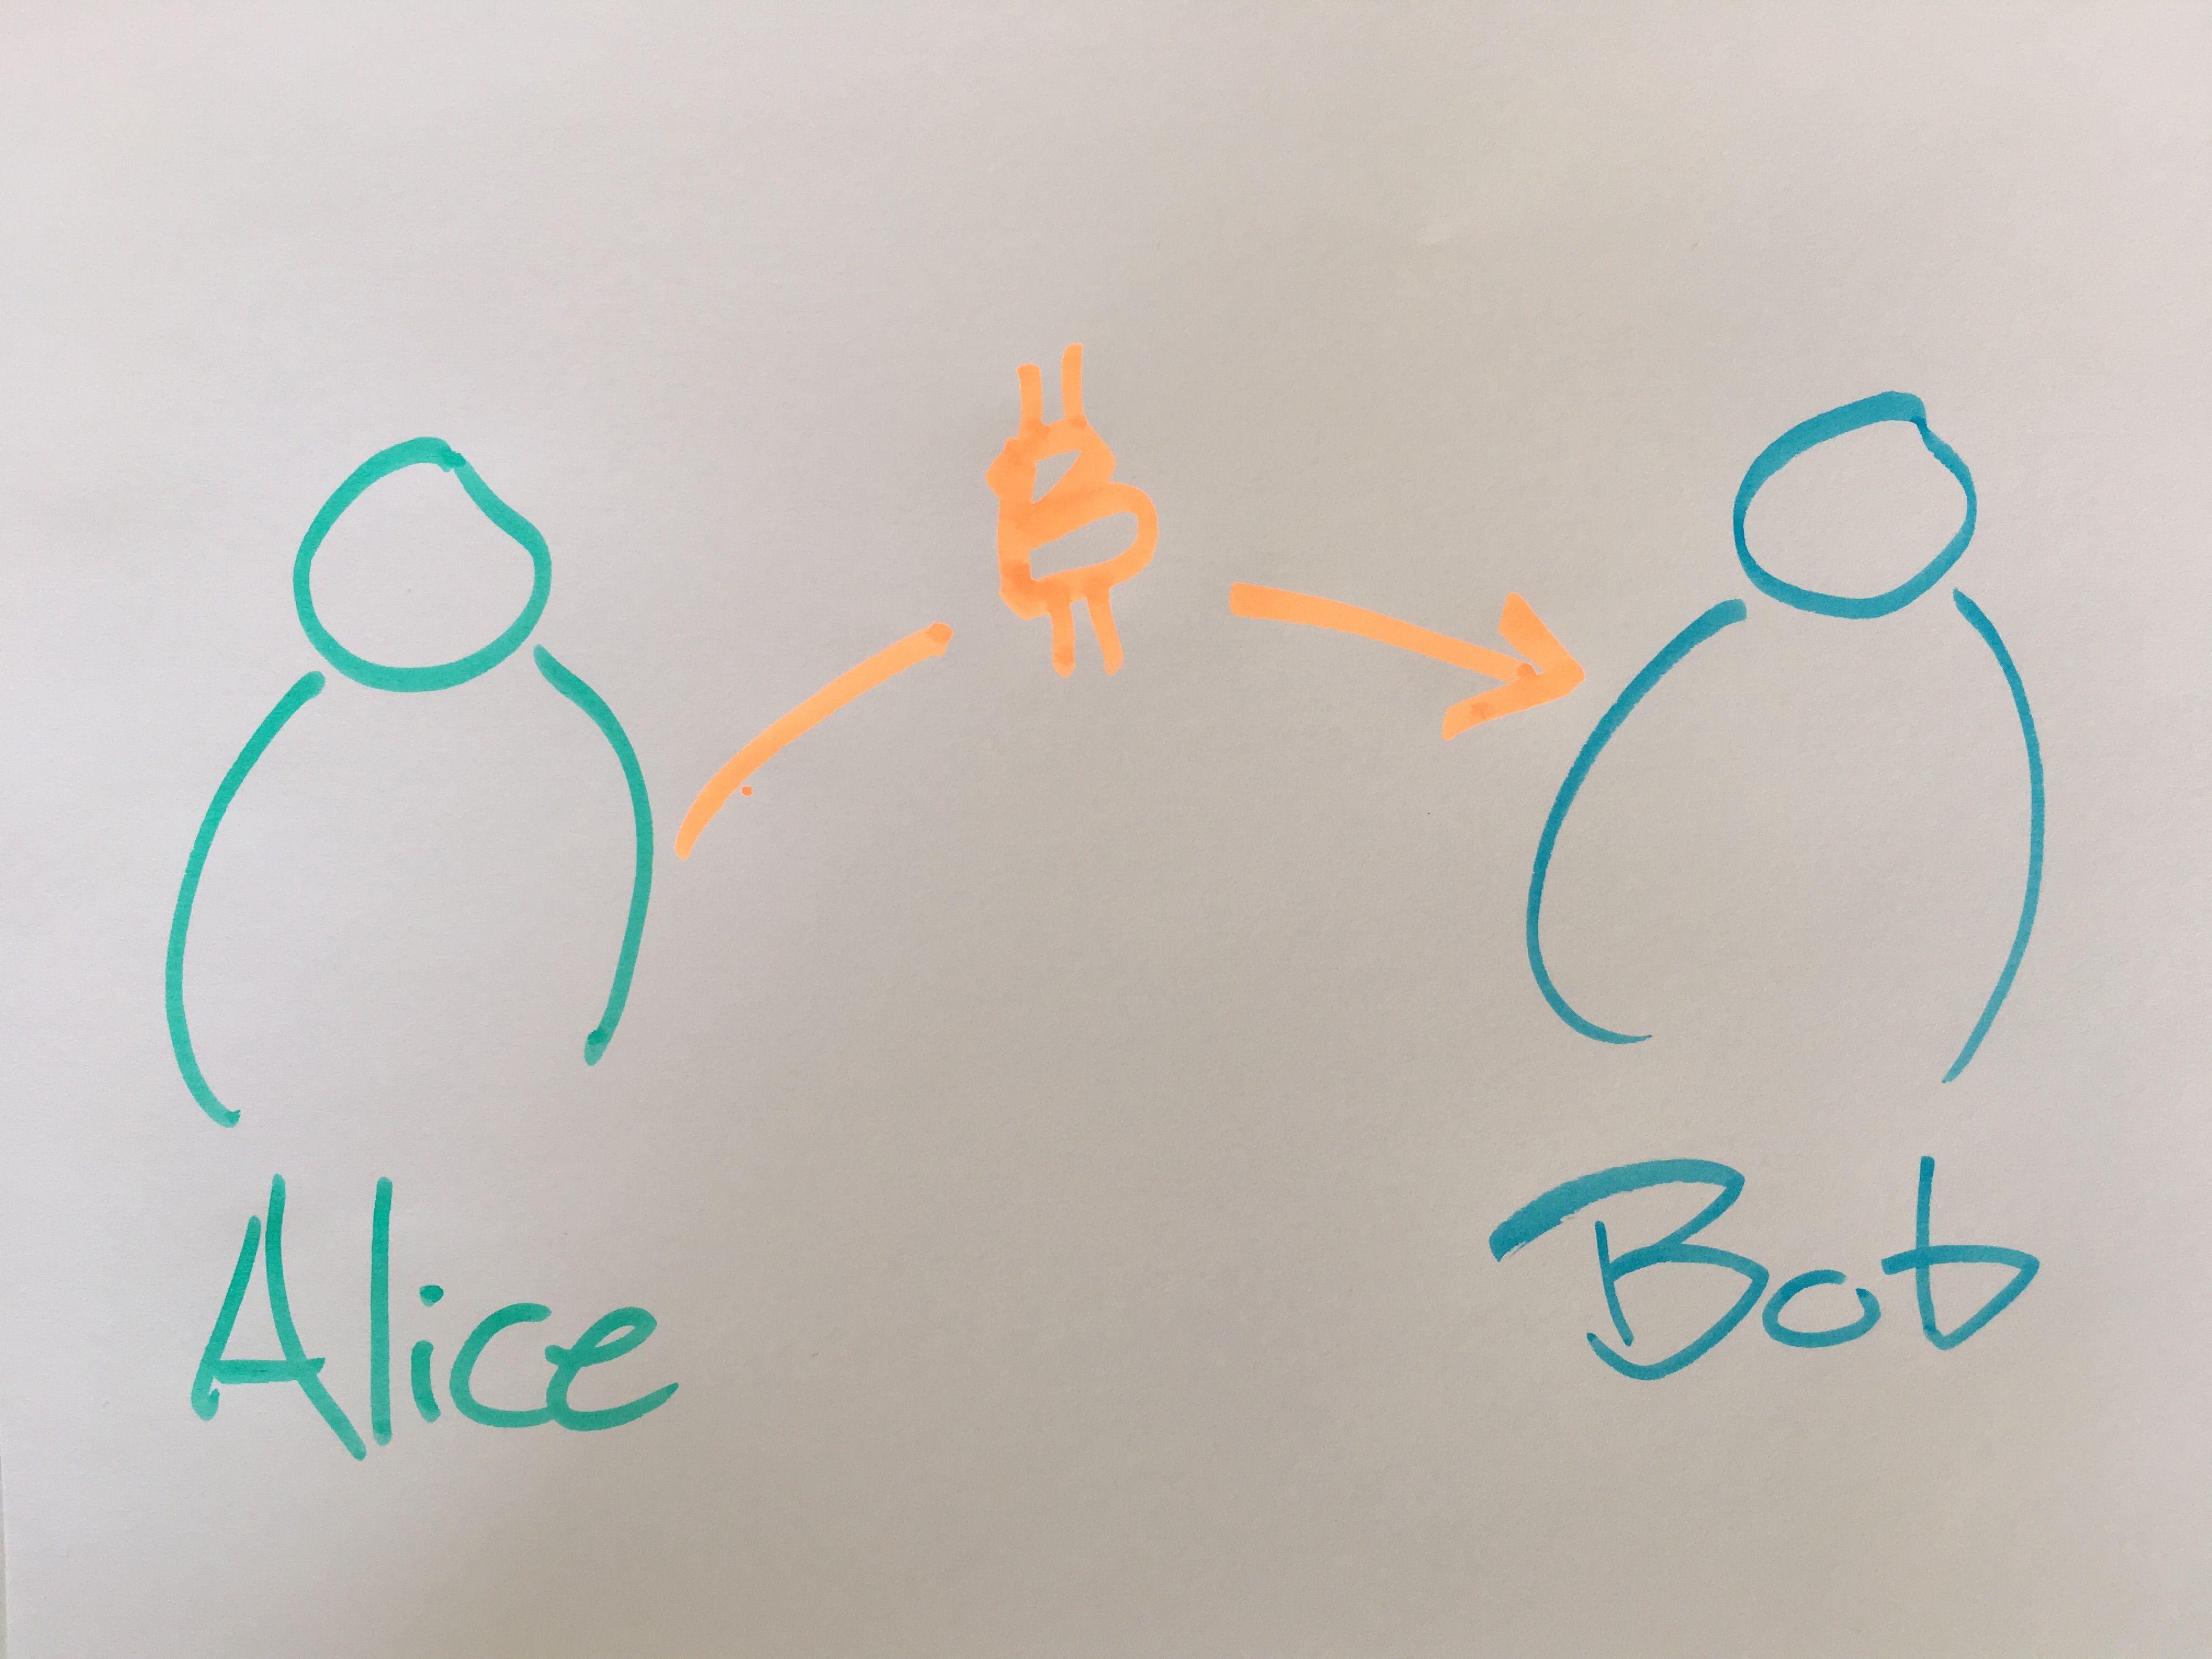 ₿
Alice
Bob